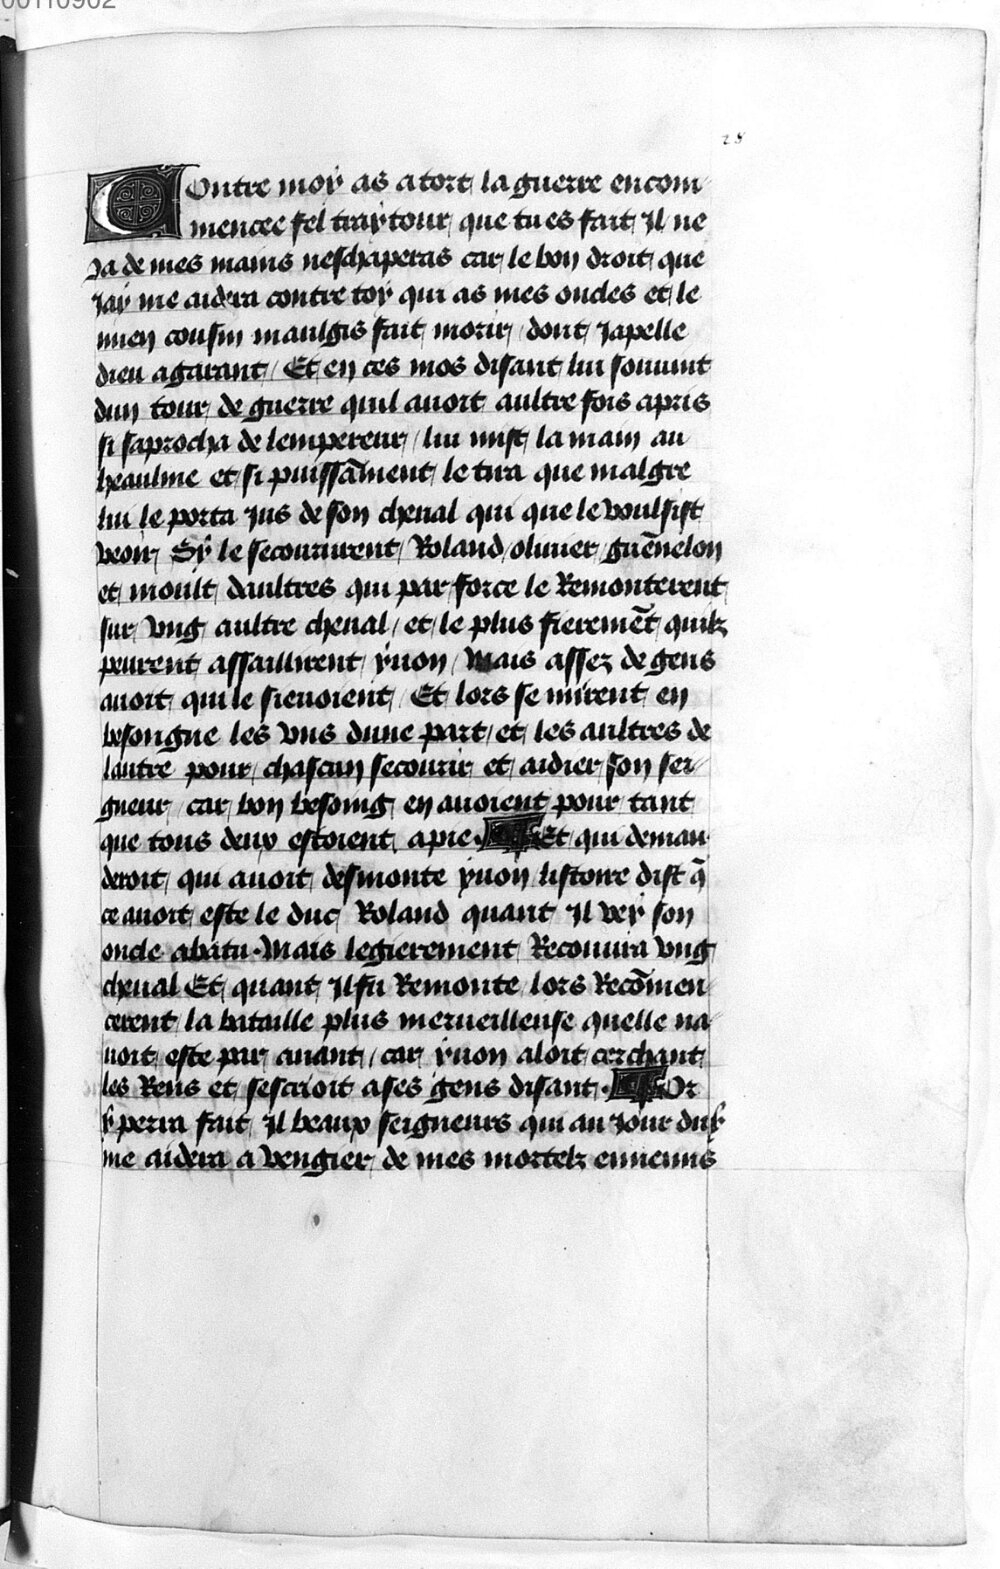 00110902
28
Contre moy as a tort la guerre encom
mencee fel traytour que tu es fait Il ne
Ja de mes mains neschaperas car le bon droit que
Jay me aidera contre toy qui as mes oncles et le
mien cousin maulgis fait morir / dont Japelle
dieu a garant / Et en ces mos disant lui souvint
dun tour de guerre quil avoit aultre fois apris
si saprocha de lempereur / lui mist la main au
heaulme et si puissāment le tira que malgre
lui le porta Jus de son cheval qui que le voulsist
veoir / Sy le secoururent / Roland / olivier / guēnelon
et moult daultres qui par force le Remonterent
sur vng aultre cheval / et le plus fieremēt quilz
peurent assaillirent yuon / Mais assez de gens
avoit qui le sievoient / Et lors se mirent en
besongne les vns dune part / et les aultres de
lautre pour chascun secourir et aidier son sei-
gneur / car bon besoing en avoient pour tant
que tous deux estoient a pie. Et qui deman-
deroit qui avoit desmonte yuon listoire dist q̄
ce avoit este le duc Roland quant Il vey son
oncle abatu. Mais legierement Recouvra vng
cheval Et quant Il fu Remonte / lors Recōmen-
cerent la bataille plus merveilleuse quelle na-
voit este par avant / car yuon aloit cerchant
les Rens et sescrioit a ses gens disant. Or
y perra fait Il beaux seigneurs qui au Jour duy
me aidera a vengier de mes mortelz ennemis